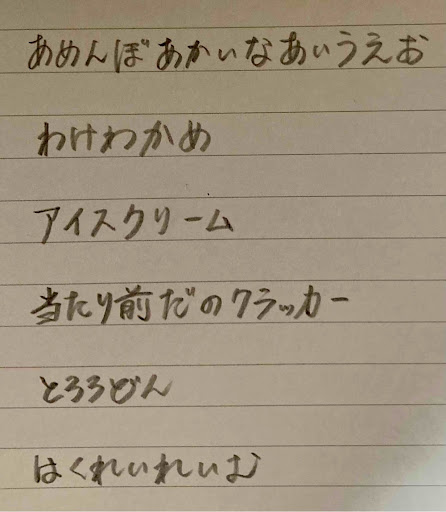 あめんぼあかいなあいうえお
わけわかめ
アイスクリーム
当たり前だのクラッカー
とろろどん
はくれいれいむ